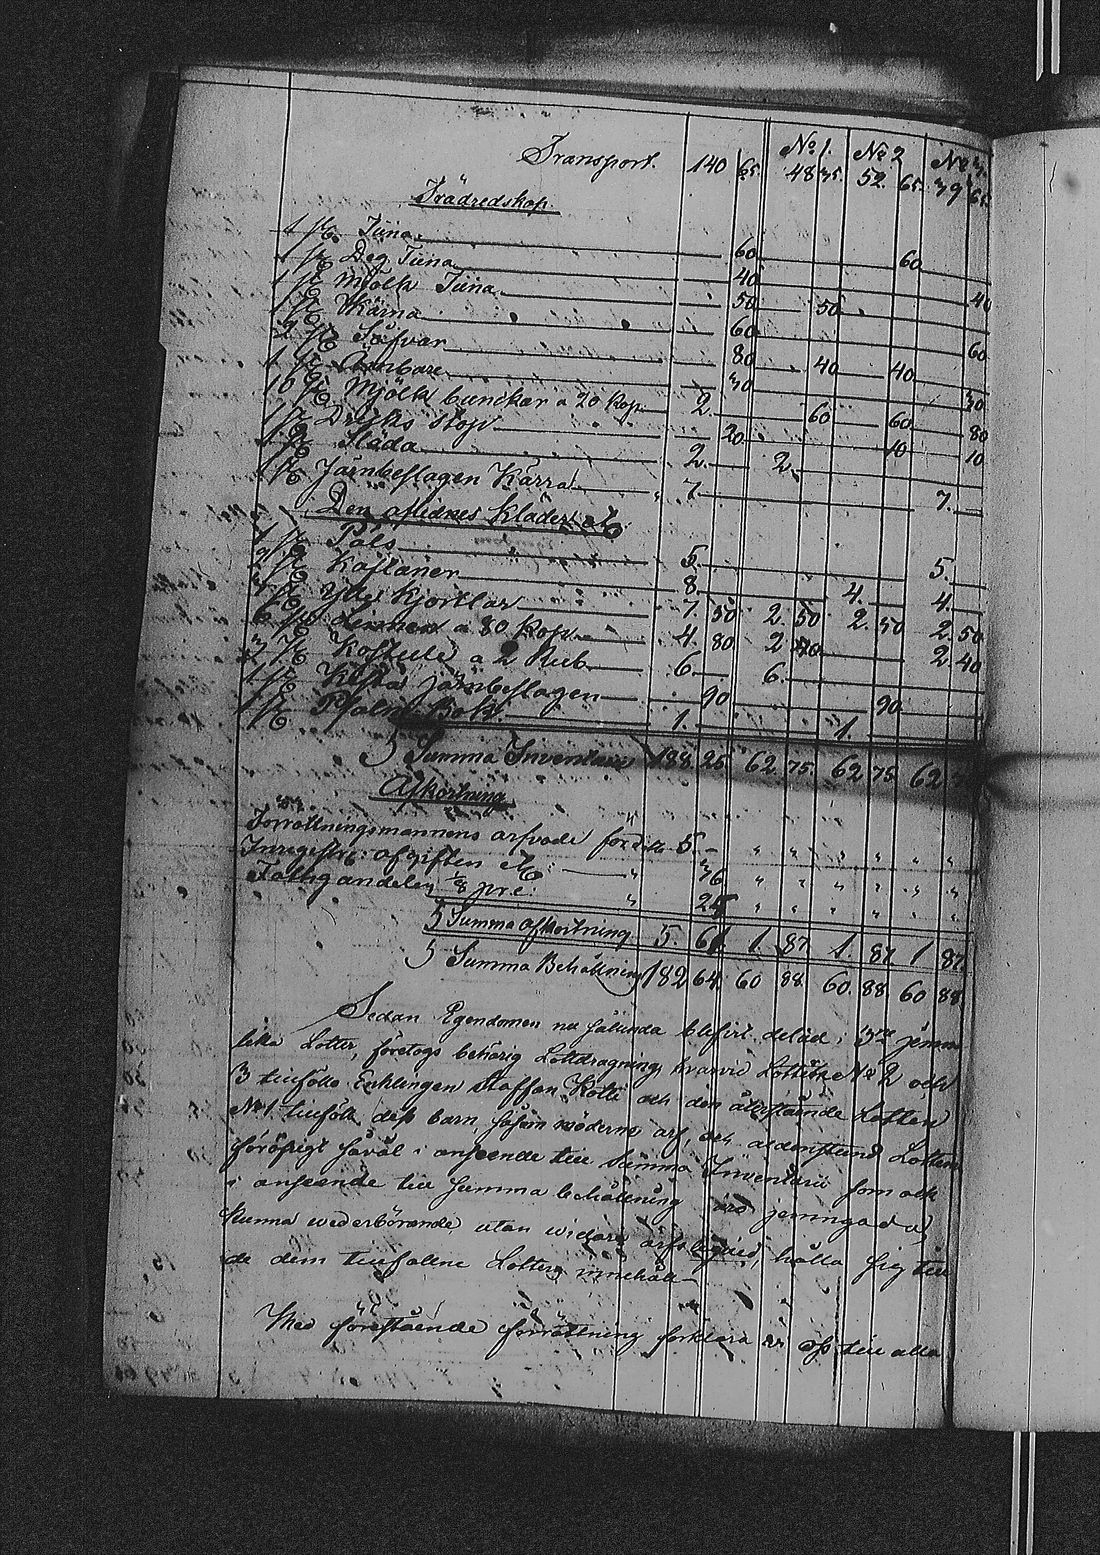 No 1. No 2 No 3.
Transport. 140 65. 48 35. 52. 65. 39 65.
Trädredskap.
1 st. Tiina 60 60
1 st Deg Tiina 40 40
1 st Mjölk Tiina 50 50
1 st Kärna 60 60
2 st Såfvar 80 40 40
1 st Ämbare 30 30
10 st Mjölk bunckar a 20 Kop 2. 60 60 80
1 st Dricks stop 20 10 10
1 st Släda 2. 2.
1 st Järnbeslagen Kärra 7. 7.
Den aflidnes Kläder &c:
1 st Päls 5. 5.
2 st Kaftaner 8. 4. 4.
3 st Ylle Kjortlar 7. 50 2. 50 2. 50 2. 50
6 st Linnen a 80 Kop 4. 80 2 40 2. 40
3 st Koftul a 2 Rub 6. 6.
1 st Kista järnbeslagen 90 90
1 st Psalm Bok 1. 1.
Summa Inventarii 188. 25 62. 75. 62 75. 62
Afkortning
Förrättningsmannens arfvode för detta 5. –
Inregistr: afgiften &c: 36
Fattigandelen 1/8 pr c: 25
Summa Afkortning 5. 61 1. 87. 1. 87 1 87.
Summa Behållning 182 64. 60 88. 60. 88. 60 88.
Sedan Egendomen nu sålunda blifvit delad i 3ne jemn
lika Lotter, företogs behörig Lottdragning hvarvid Lotterne No 2 och
3 tillföllo Enklingen Staffan Kotti och den återstående Lotten
No 1. tillföll dess barn, såsom möderne arf, och aldenstund Lotterne
föröfrigt såväl i anseende till Summa Inventarii som och
i anseende till summa behållning äro jemngoda,
kunna wederbörande, utan widare arfskifte, hålla sig till
de dem tillfallne Lotters innehåll –
Med förestående förrättning förklara vi oss till alla